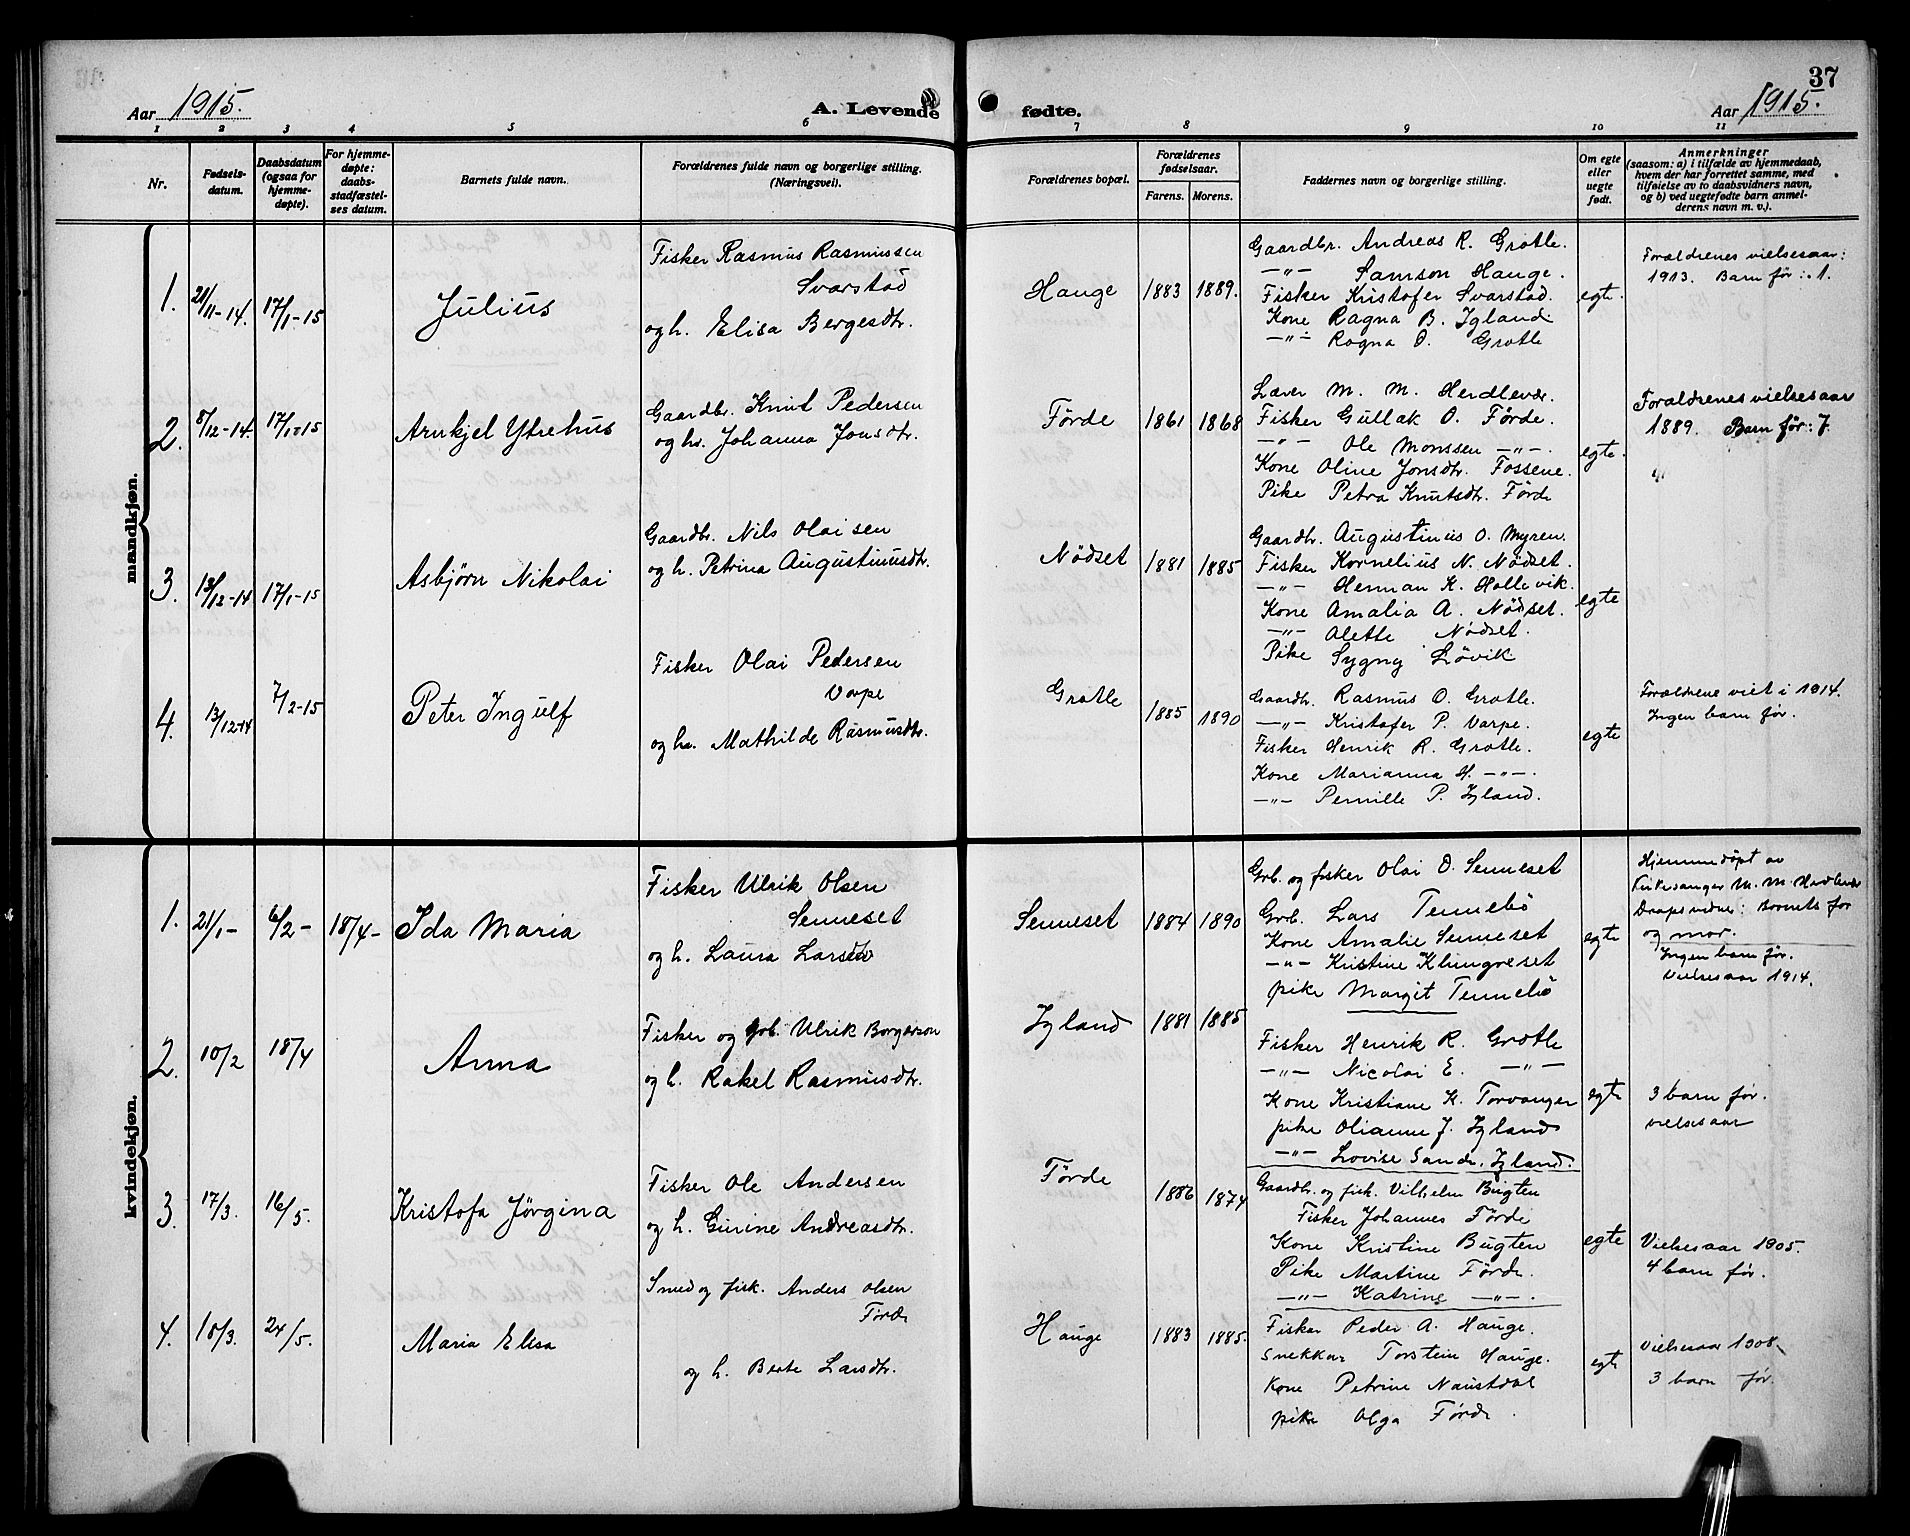 37
Aar 1915. A. Levende fødte. Aar 1915.
1 2 3 4 5 6 7 8 9 10 11
Nr.
Fødsels-
datum.
Daabsdatum
(ogsaa for
hjemme-
døpte).
For hjemme-
døpte:
daabs-
stadfæstel-
ses datum.
Barnets fulde navn.
Forældrenes fulde navn og borgerlige stilling.
(Næringsvei).
Forældrenes bopæl.
Forældrenes
fødselsaar.
Farens. Morens.
Faddernes navn og borgerlige stilling.
Om egte
eller
uegte
født.
Anmerkninger
(saasom: a) i tilfælde av hjemmedaab,
hvem der har forrettet samme, med
tilføielse av to daabsvidners navn,
og b) ved uegtefødte barn anmel-
derens navn m. v.).
mandkjøn.
1. 21/11-14. 17/1-15 Julius
Fisker Rasmus Rasmussen
Svarstad
og h. Elisa Bergesdtr.
Hauge 1883 1889.
Gaardbr. Andreas R. Grotle.
—"— Samson Hauge.
Fisker Kristofer Svarstad.
Kone Ragna B. Igland
—"— Ragna O. Grotle
egte.
Forældrenes vielsesaar:
1913. Barn før: 1.
2. 8/12-14. 17/1-15 Arnkjel Ytrehus
Gaardbr. Knut Pedersen
og hs. Johanna Jonsdtr.
Förde 1861 1868
Lærer M. M. Herdlevær.
Fisker Gullak O. Förde.
—"— Ole Monssen —"—.
Kone Oline Jonsdtr. Fossene.
Pike Petra Knutsdtr. Förde
egte.
Forældrenes vielsesaar
1889. Barn før: 7.
3. 13/12-14 17/1-15 Asbjörn Nikolai
Gaardbr. Nils Olaisen
og h. Petrina Augustinusdtr.
Nödset 1881 1885
Gaardbr. Augustinus O. Myren.
Fisker Kornelius N. Nödset.
—"— Herman K. Hollevik.
Kone Amalia A. Nödset.
—"— Olette Nödset.
Pike Sygny Lövik
egte
4. 13/12-14 7/2-15 Peter Ingulf
Fisker Olai Pedersen
Varpe
og hs. Mathilde Rasmusdtr.
Grotle 1885 1890
Gaardbr. Rasmus O. Grotle.
—"— Kristofer P. Varpe.
Fisker Henrik R. Grotle.
Kone Marianna H. —"—.
—"— Pernille P. Igland.
egte
Forældrene viet i 1914.
Ingen barn før.
kvindekjøn.
1. 21/1- 6/2- 18/4- Ida Maria
Fisker Ulrik Olsen
Senneset
og h. Laura Larsdtr
Senneset 1884 1890
Grb. og fisker Olai O. Senneset
Grb. Lars Tennebö
Kone Amalie Senneset
—"— Kristine Klungreset
pike Margit Tennebö
egte
Hjemmedöpt av
Kirkesanger M. M. Herdlevær
Daapsvidner: Barnets far
og mor.
Ingen barn før.
Vielsesaar 1914.
2. 10/2 18/4 Anna
Fisker og grb. Ulrik Borgerson
og h. Rakel Rasmusdtr.
Igland 1881 1885
Fisker Henrik R. Grotle
—"— Nicolai E. —"—
Kone Kristiane K. Torvanger
pike Olianne J. Igland
—"— Lovise Sandr. Igland.
egte
3 barn før.
vielsesaar
3. 17/3. 16/5. Kristofa Jörgina
Fisker Ole Andersen
og h. Gurine Andreasdtr.
Förde 1886 1874
Gaardbr. og fisk. Vilhelm Bugten
Fisker Johannes Förde
Kone Kristine Bugten
Pike Martine Förde.
—"— Katrine —"—.
egte
Vielsesaar 1905.
4 barn før.
4. 18/3. 24/5. Maria Elisa
Smed og fisk. Anders Olsen
Förde
og h. Berte Larsdtr.
Hauge 1883 1885.
Fisker Peder A. Hauge.
Snekker Torstein Hauge.
Kone Petrine Naustdal
pike Olga Förde.
egte
Vielsesaar 1908.
3 barn før.